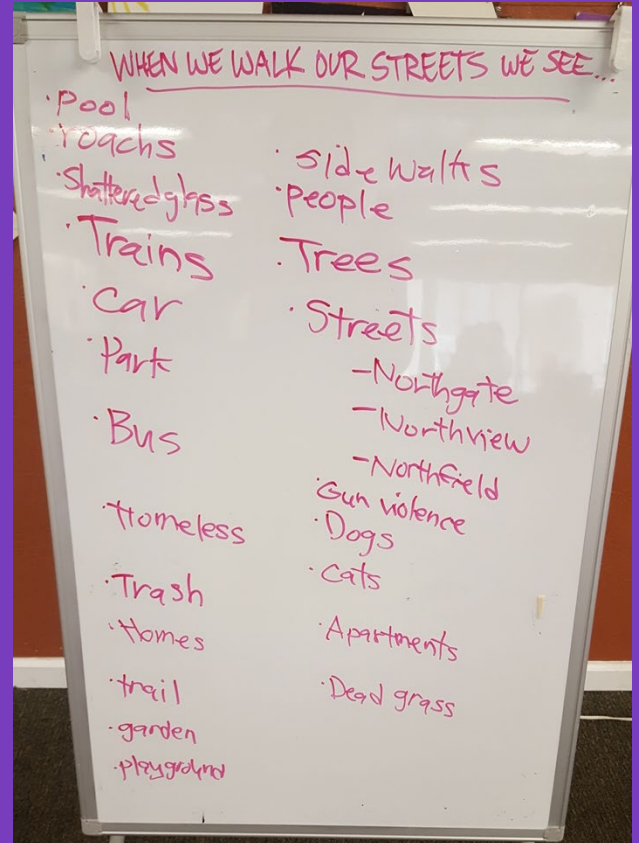 WHEN WE WALK OUR STREETS WE SEE...
·Pool
·roachs
·Shattered glass
·Trains
·Car
·Park
·Bus
·Homeless
·Trash
·Homes
·trail
·garden
·playground
·side walks
·People
·Trees
·Streets
-Northgate
-Northview
-Northfield
·Gun violence
·Dogs
·Cats
·Apartments
·Dead grass